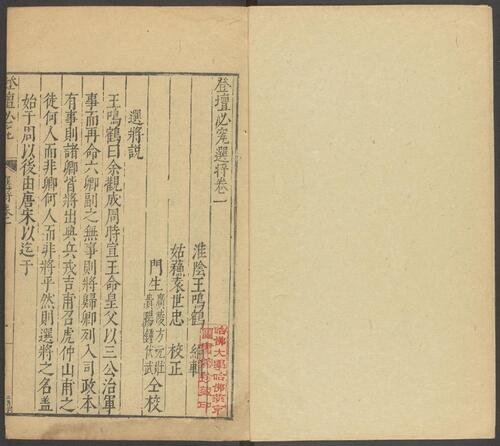 登壇必究選將卷一
淮陰王鳴鶴 編輯
姑蘇袁世忠 校正
門生
廣陵方元壯
仝校
選將說
王鳴鶴曰余觀成周時宣王命皇父以三公治軍
事而再命六卿副之無事則將歸卿列入司政本
有事則諸卿皆將出與兵戎吉甫召虎仲山甫之
徒何人而非卿何人而非將乎然則選將之名盖
始于周以後由唐宋以迄于
登壇必究
選將卷一
哈佛大學哈佛燕京
圖書館珍藏印